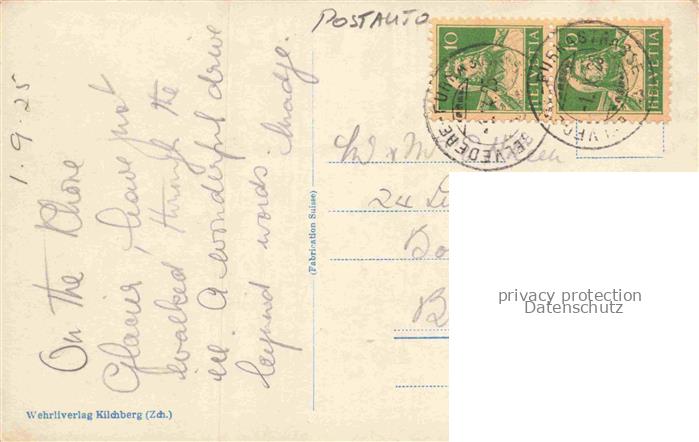 POSTAUTO
10
HELVETIA
10
HELVETIA
BELVEDERE
1.9.25
On the Rhone
Glacier, have just
walked through the
ice. A wonderful drive
beyond words. Madge.
(Fabrication Suisse)
24
Wehrliverlag Kilchberg (Zch.)
privacy protection
Datenschutz